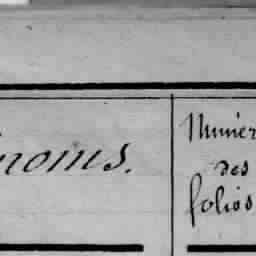 noms.
Numér
des
folios